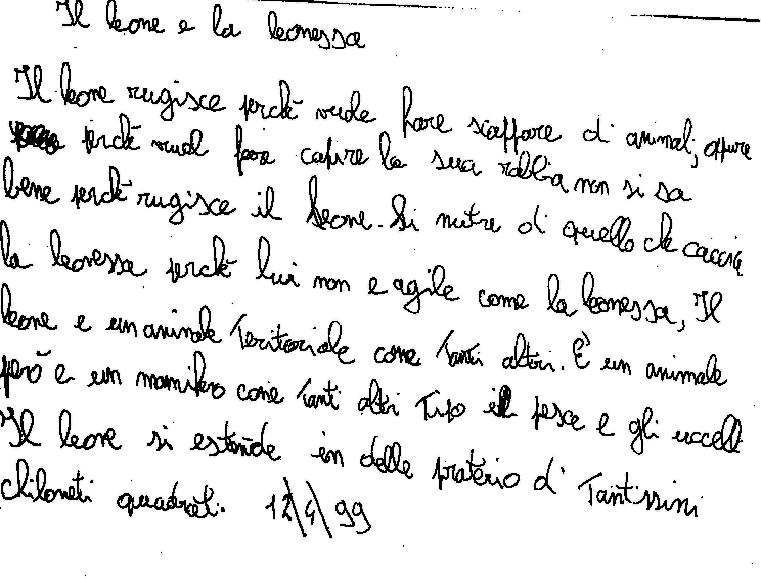 Il leone e la leonessa
Il leone rugisce perchè vuole fare scappare di animali, opure
perchè vuol fare capire la sua rabbia non si sa
bene perchè rugisce il leone. Si nutre di quello che caccia
la leonessa perchè lui non e agile come la leonessa, Il
leone e un animale Teritoriale come Tanti altri. È un animale
però e un mamifero come Tanti altri Tipo il pesce e gli uccelli
Il leone si estende in delle praterio di Tantissimi
chilometi quadrati. 12/4/99